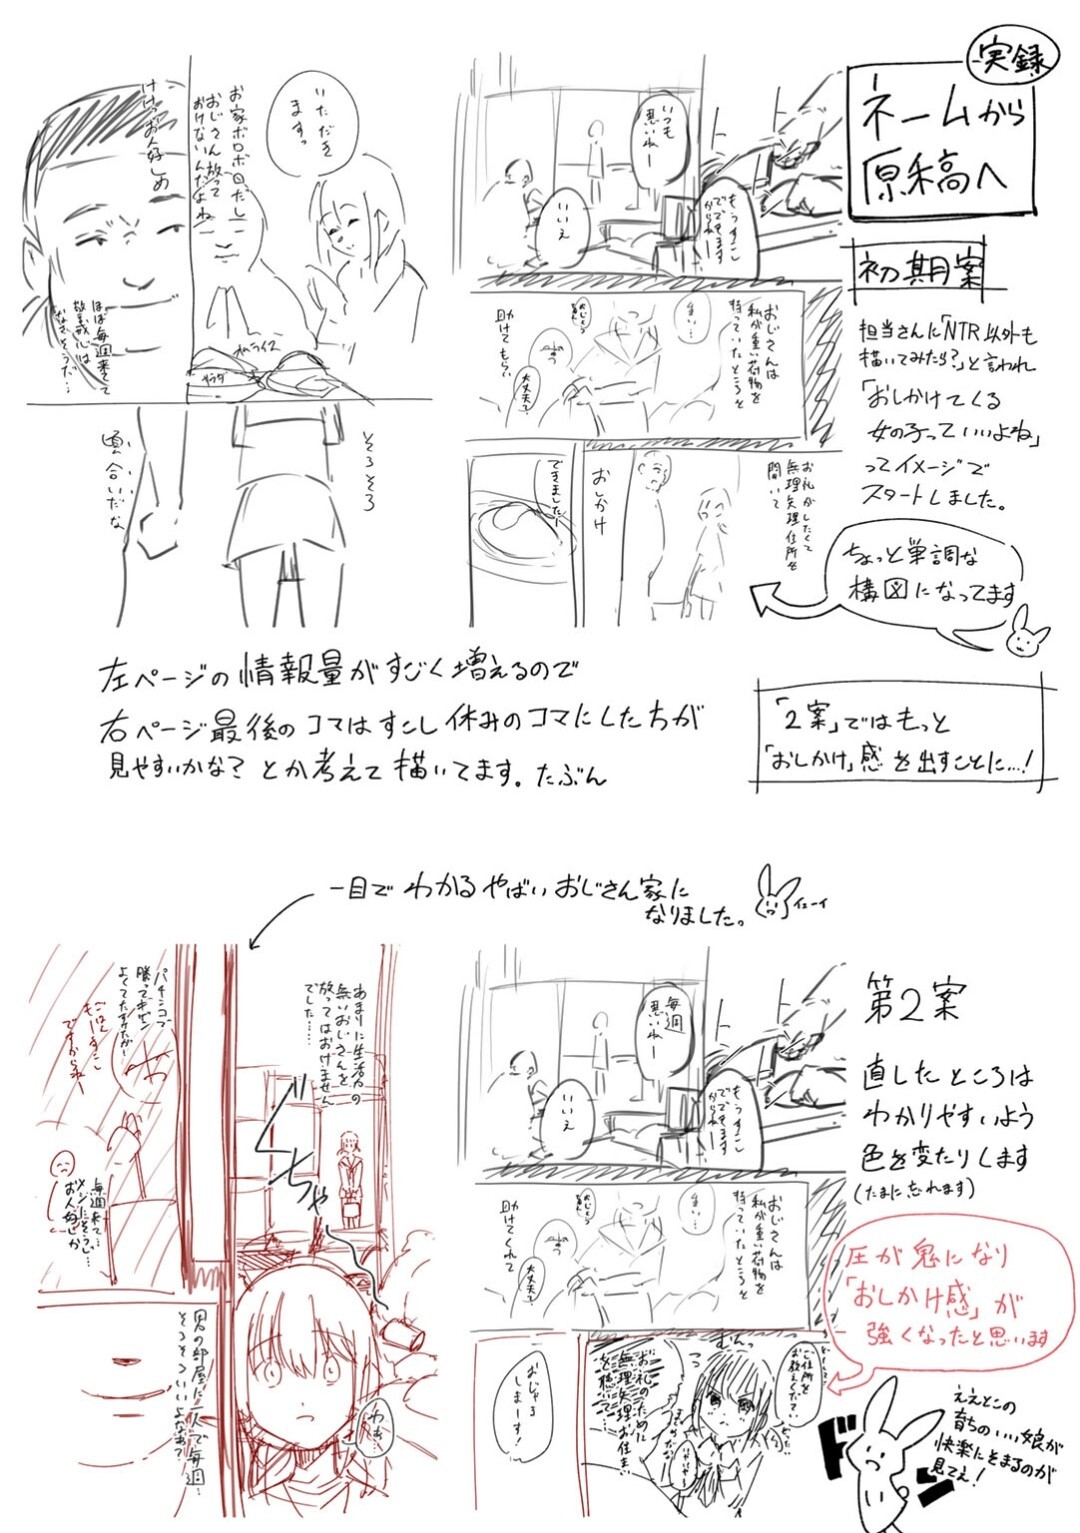 実録
ネームから
原稿へ
初期案
担当さんに「NTR以外も
描いてみたら?」と言われ
「おしかけてくる
女の子っていいよね」
ってイメージで
スタートしました。
ちょっと単調な
構図になってます
いつも
悪いねー
いいえ
もうすこし
でできます
からねー
おじさんは
私が重い荷物を
持っていたところを
大丈夫?
助けてもらい
お礼がしたくて
無理矢理住所を
聞いて
おしかけ
できましたー
いただき
ますっ
お家ボロボロだし
おじさん放って
おけないんだよね
けけっお人好しめ
ほぼ毎週来てて
警戒心は
なさそうだ…
オムライス
サラダ
そろそろ
頃合いだな
左ページの情報量がすごく増えるので
右ページ最後のコマはすこし休みのコマにしたちが
見やすいかな?とか考えて描いてます。たぶん
「2案」ではもっと
「おしかけ」感を出すことに…!
一目でわかるやばいおじさん家に
なりました。
イェーイ
第2案
直したところは
わかりやすいよう
色を変たりします
(たまに忘れます)
毎週
悪いねー
いいえ
もうすこし
でできます
からねー
おじさんは
私が重い荷物を
持っていたところを
大丈夫?
助けてくれて
圧が鬼になり
「おしかけ感」が
強くなったと思います
ご住所を
お教えください
むんっ
お礼のために
無理矢理お住まい
を聴いて
おじゃま
しまーす!
あまりに生活力の
無いおじさんを
放ってはおけません
でした……
ぐちゃ
わぁ…
パチンコで
勝ってキゲン
よくてたすけたが…
ごはん
もーすこし
ですからねー
毎週来て…
メシにそうじ…
お人好しか
男の部屋に一人で毎週…
そろそろいいよなぁ?
ええとこの
育ちのいい娘が
快楽にそまるのが
見てえ!
ドン